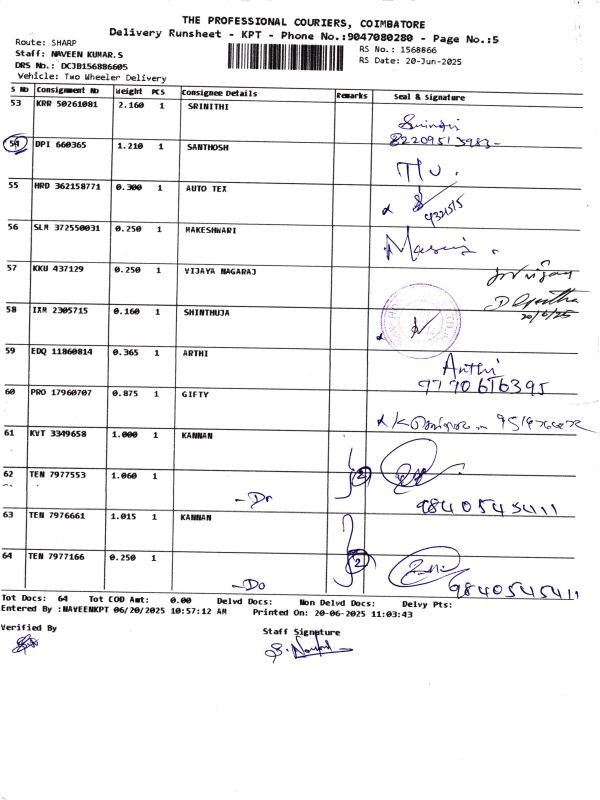 THE PROFESSIONAL COURIERS, COIMBATORE
Delivery Runsheet - KPT - Phone No.:9047080280 - Page No.:5
Route: SHARP
Staff: NAVEEN KUMAR.S
DRS No.: DCJB156886605
Vehicle: Two Wheeler Delivery
RS No.: 1568866
RS Date: 20-Jun-2025
S No Consignment No Weight PCS Consignee Details Remarks Seal & Signature
53 KRR 50261081 2.160 1 SRINITHI
Srinithi
54 DPI 660365 1.210 1 SANTHOSH
55 HRD 362158771 0.300 1 AUTO TEX
56 SLM 372550031 0.250 1 MAKESHWARI
57 KKU 437129 0.250 1 VIJAYA NAGARAJ
20/6/25
58 IXM 2305715 0.160 1 SHINTHUJA
59 EDQ 11860814 0.365 1 ARTHI
Arthi
9770616395
60 PRO 17960707 0.875 1 GIFTY
61 KVT 3349658 1.000 1 KANNAN
2
62 TEN 7977553 1.060 1
-Do
9840545411
63 TEN 7976661 1.015 1 KANNAN
2
64 TEN 7977166 0.250 1
-Do
9840545411
Tot Docs: 64 Tot COD Amt: 0.00 Delvd Docs: Non Delvd Docs: Delvy Pts:
Entered By :NAVEENKPT 06/20/2025 10:57:12 AM Printed On: 20-06-2025 11:03:43
Verified By
Staff Signature